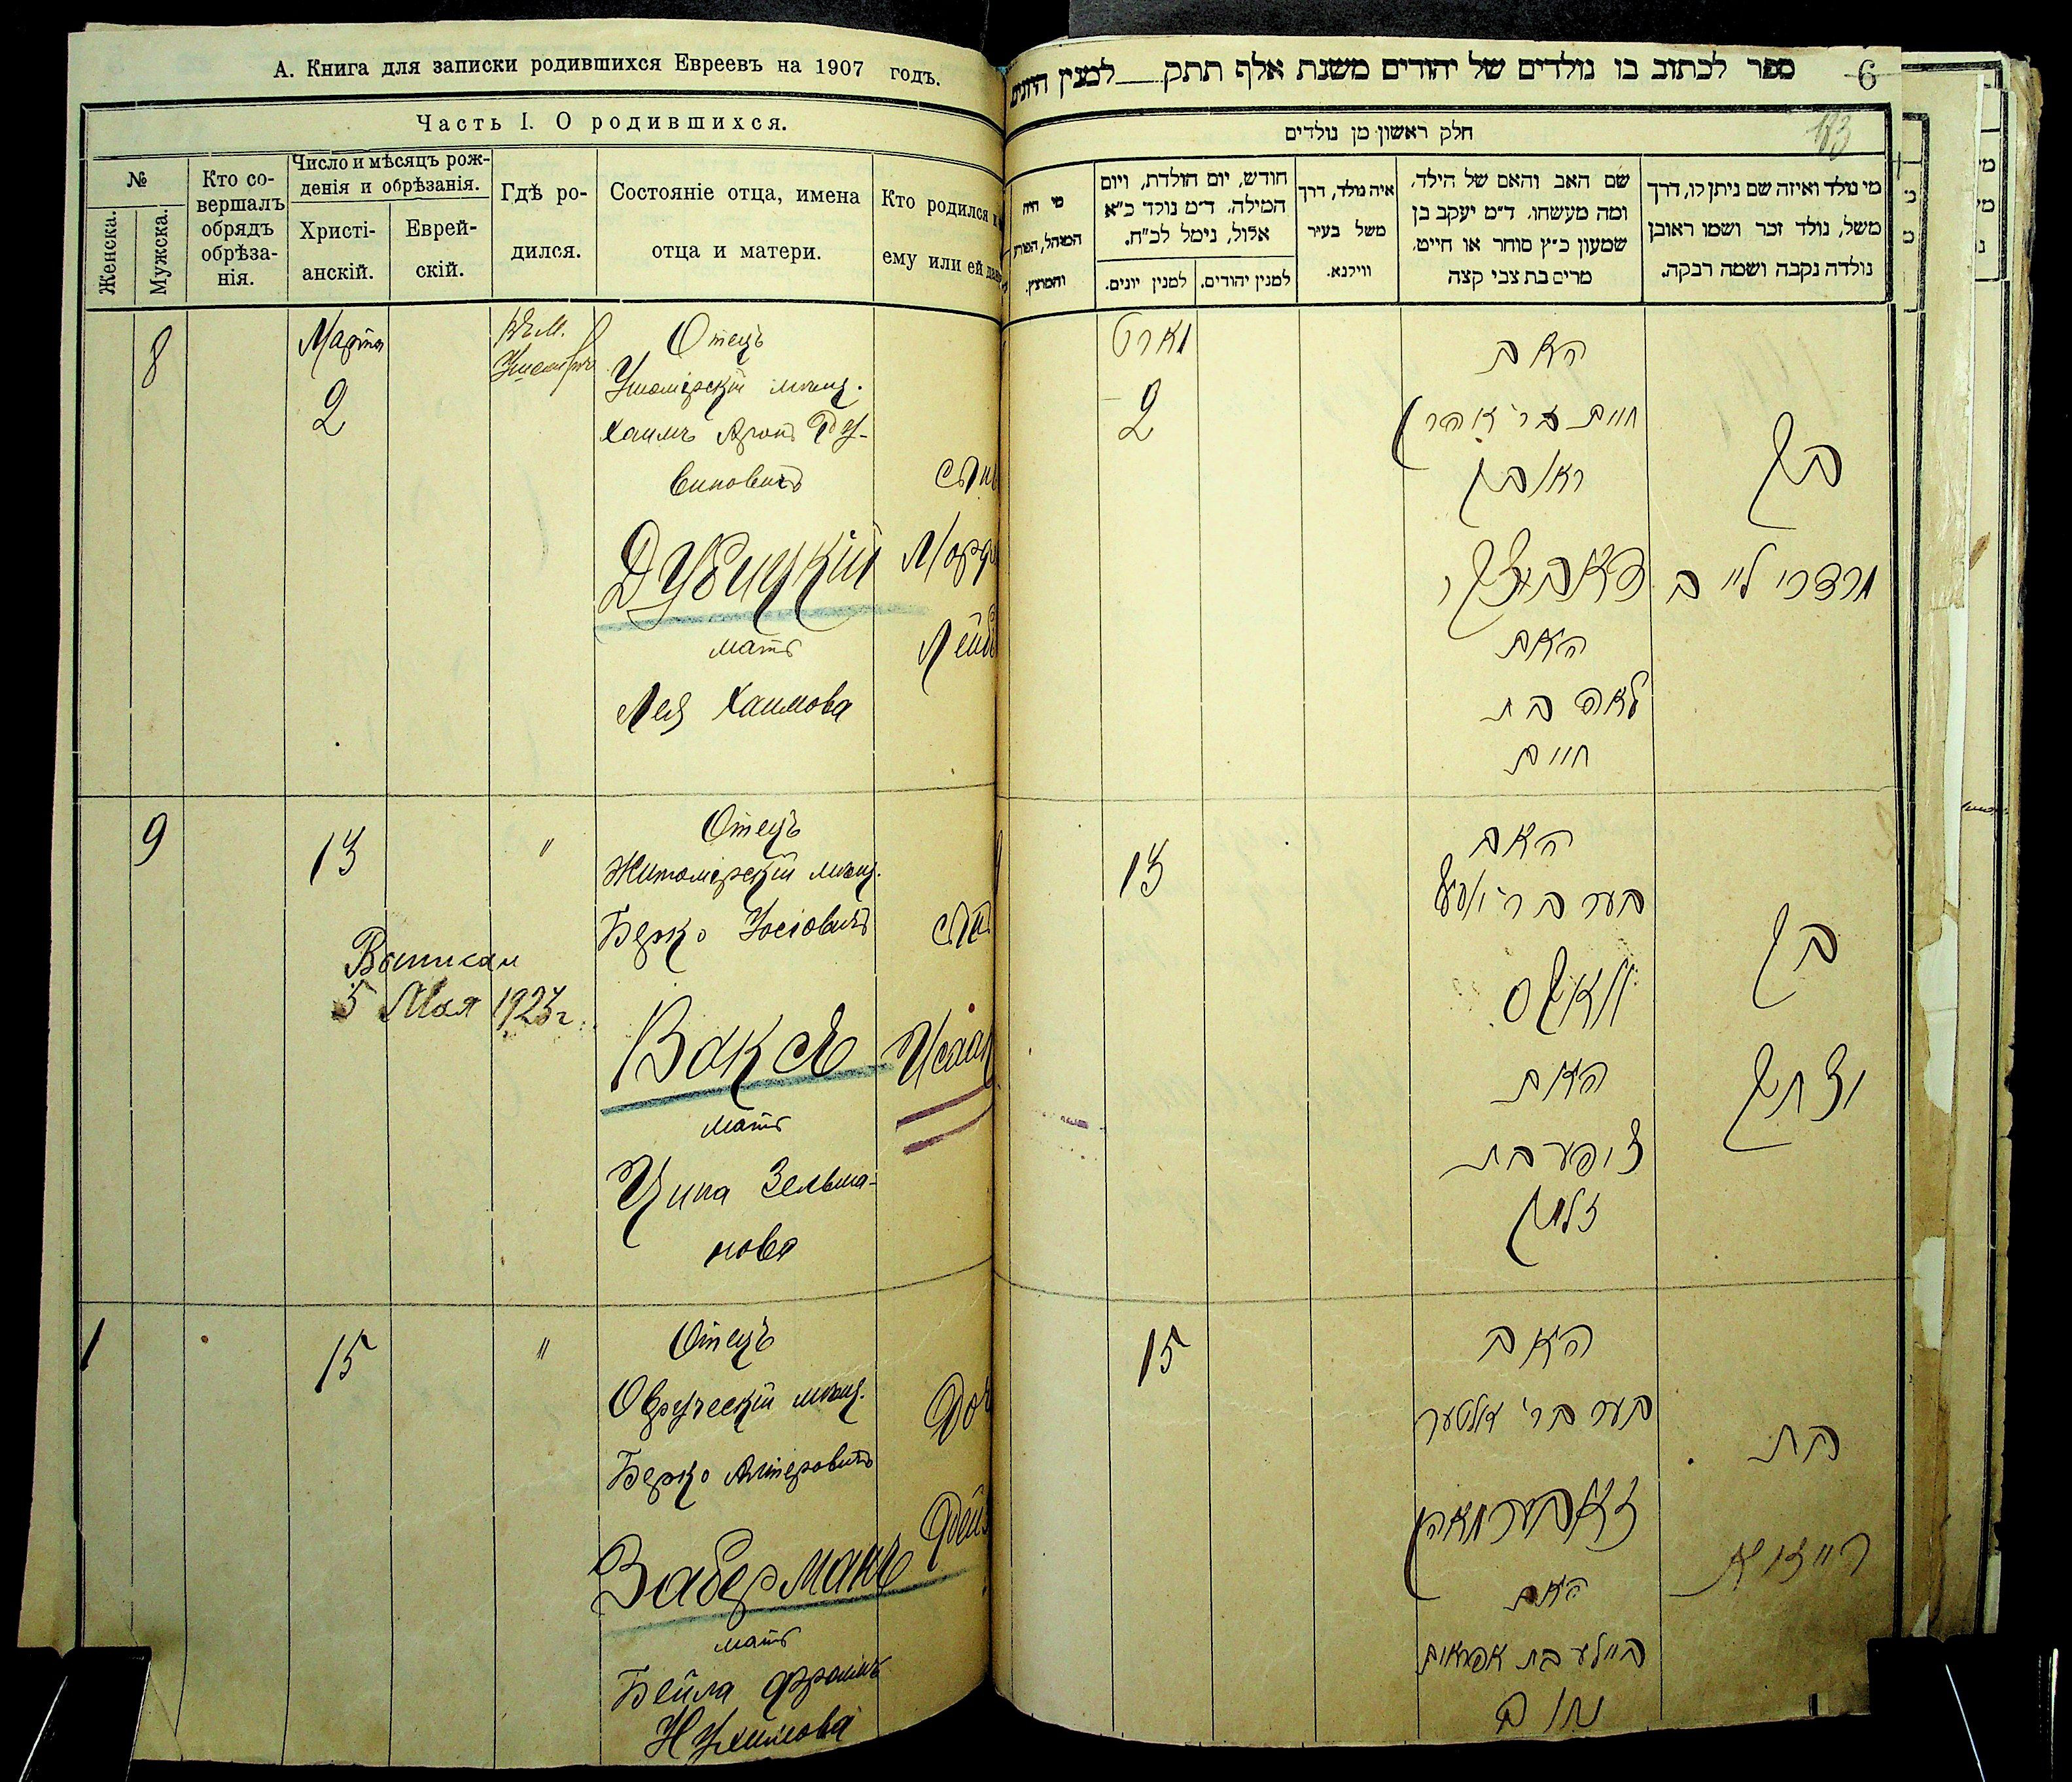 А. Книга для записки родившихся Евреевъ на 1907 годъ.
Часть I. О родившихся.
№
Женска.
Мужска.
Кто со-
вершалъ
обрядъ
обрѣза-
нія.
Число и мѣсяцъ рож-
денія и обрѣзанія.
Христі-
анскій.
Еврей-
скій.
Гдѣ ро-
дился.
Состояніе отца, имена
отца и матери.
Кто родился и
ему или ей
8
Марта
2
въ М.
Отецъ
Ушомірскій мѣщ.
Хаимъ Аронъ Ру-
виновичъ
Дубицкій
мать
Лея Хаимова
сынъ
Лейб
9
13
"
Отецъ
Житомірскій мѣщ.
Берко Іосіовичъ
Ваксъ
мать
Ципа Зельма-
нова
Исаак
5 Мая 1923 г.
1
15
"
Отецъ
Овручскій мѣщ.
Берко Алтеровичъ
Заберманъ
мать
Бейла Фроимъ
Нухимова
Доч
ספר לכתוב בו נולדים של יהודים משנת אלף תתק למנין היונים
6
183
חלק ראשון מן נולדים
מי היה
המוהל, הפורע
והמוצץ.
חודש, יום הולדת, ויום
המילה. ד״מ נולד כ״א
אלול, נימל לכ״ח.
למנין יונים.
למנין יהודים.
איה נולד, דרך
משל בעיר
ווילנא.
שם האב והאם של הילד,
ומה מעשהו. ד״מ יעקב בן
שמעון כ״ץ סוחר או חייט,
מרים בת צבי קצה
מי נולד ואיזה שם ניתן לו, דרך
משל, נולד זכר ושמו ראובן
נולדה נקבה ושמה רבקה.
מארט
2
האב
חיים בר׳ אהרן
ראובן
האם
לאה בת
חיים
בן
מרדכי לייב
13
האב
בער בר׳
וואקס
האם
ציפע בת
זלמן
בן
יצחק
15
האב
בער בר׳ אלטער
זאבערמאן
האם
ביילע בת אפרים
נחום
בת